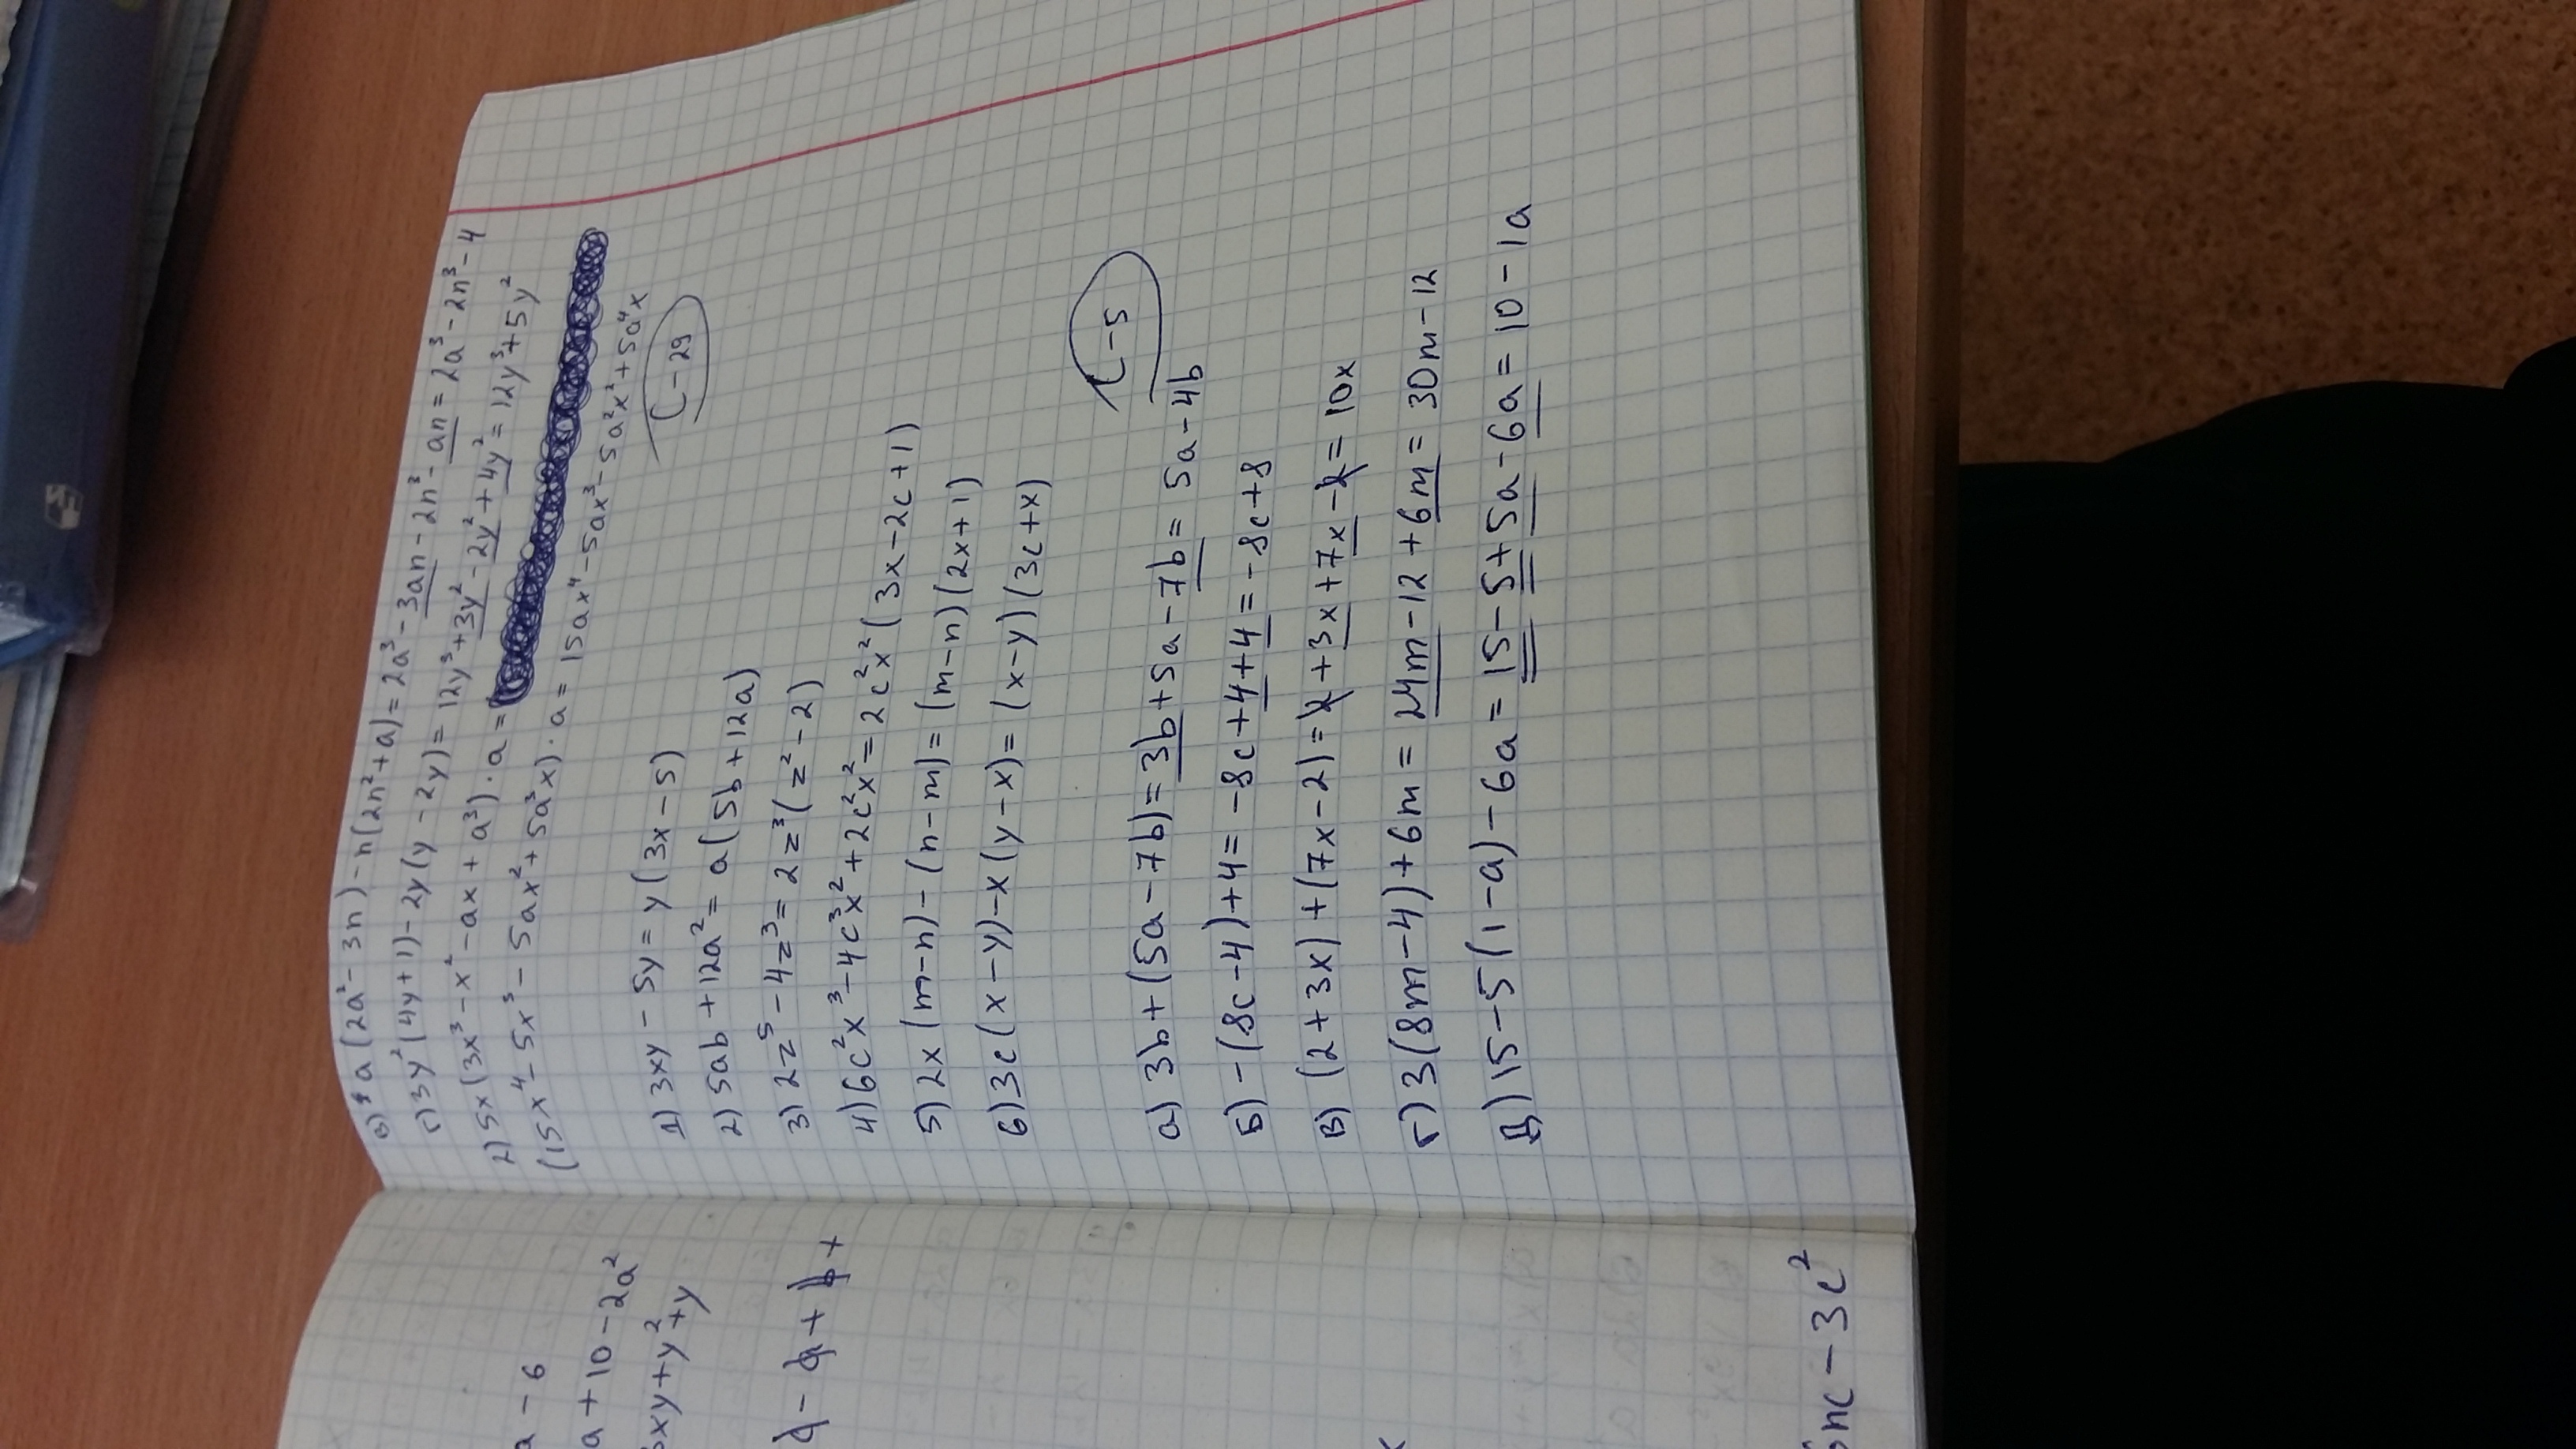 в) a(2a²-3n)-n(2n²+a)=2a³-3an-2n³-an=2a³-2n³-4
г) 3y²(4y+1)-2y(y-2y)=12y³+3y²-2y²+4y²=12y³+5y²
2) 5x(3x³-x²-ax+a³)·a=
(15x⁴-5x³-5ax²+5a³x)·a=15ax⁴-5ax³-5a²x²+5a⁴x
С-29
1) 3xy-5y=y(3x-5)
2) 5ab+12a²=a(5b+12a)
3) 2z⁵-4z³=2z³(z²-2)
4) 6c²x³-4c³x²+2c²x²=2c²x²(3x-2c+1)
5) 2x(m-n)-(n-m)=(m-n)(2x+1)
6) 3c(x-y)-x(y-x)=(x-y)(3c+x)
С-5
а) 3b+(5a-7b)=3b+5a-7b=5a-4b
Б) -(8c-4)+4=-8c+4+4=-8c+8
В) (2+3x)+(7x-2)=2+3x+7x-2=10x
Г) 3(8m-4)+6m=24m-12+6m=30m-12
Д) 15-5(1-a)-6a=15-5+5a-6a=10-1a
a-6
a+10-2a²
xy+y²+y
nc-3c²